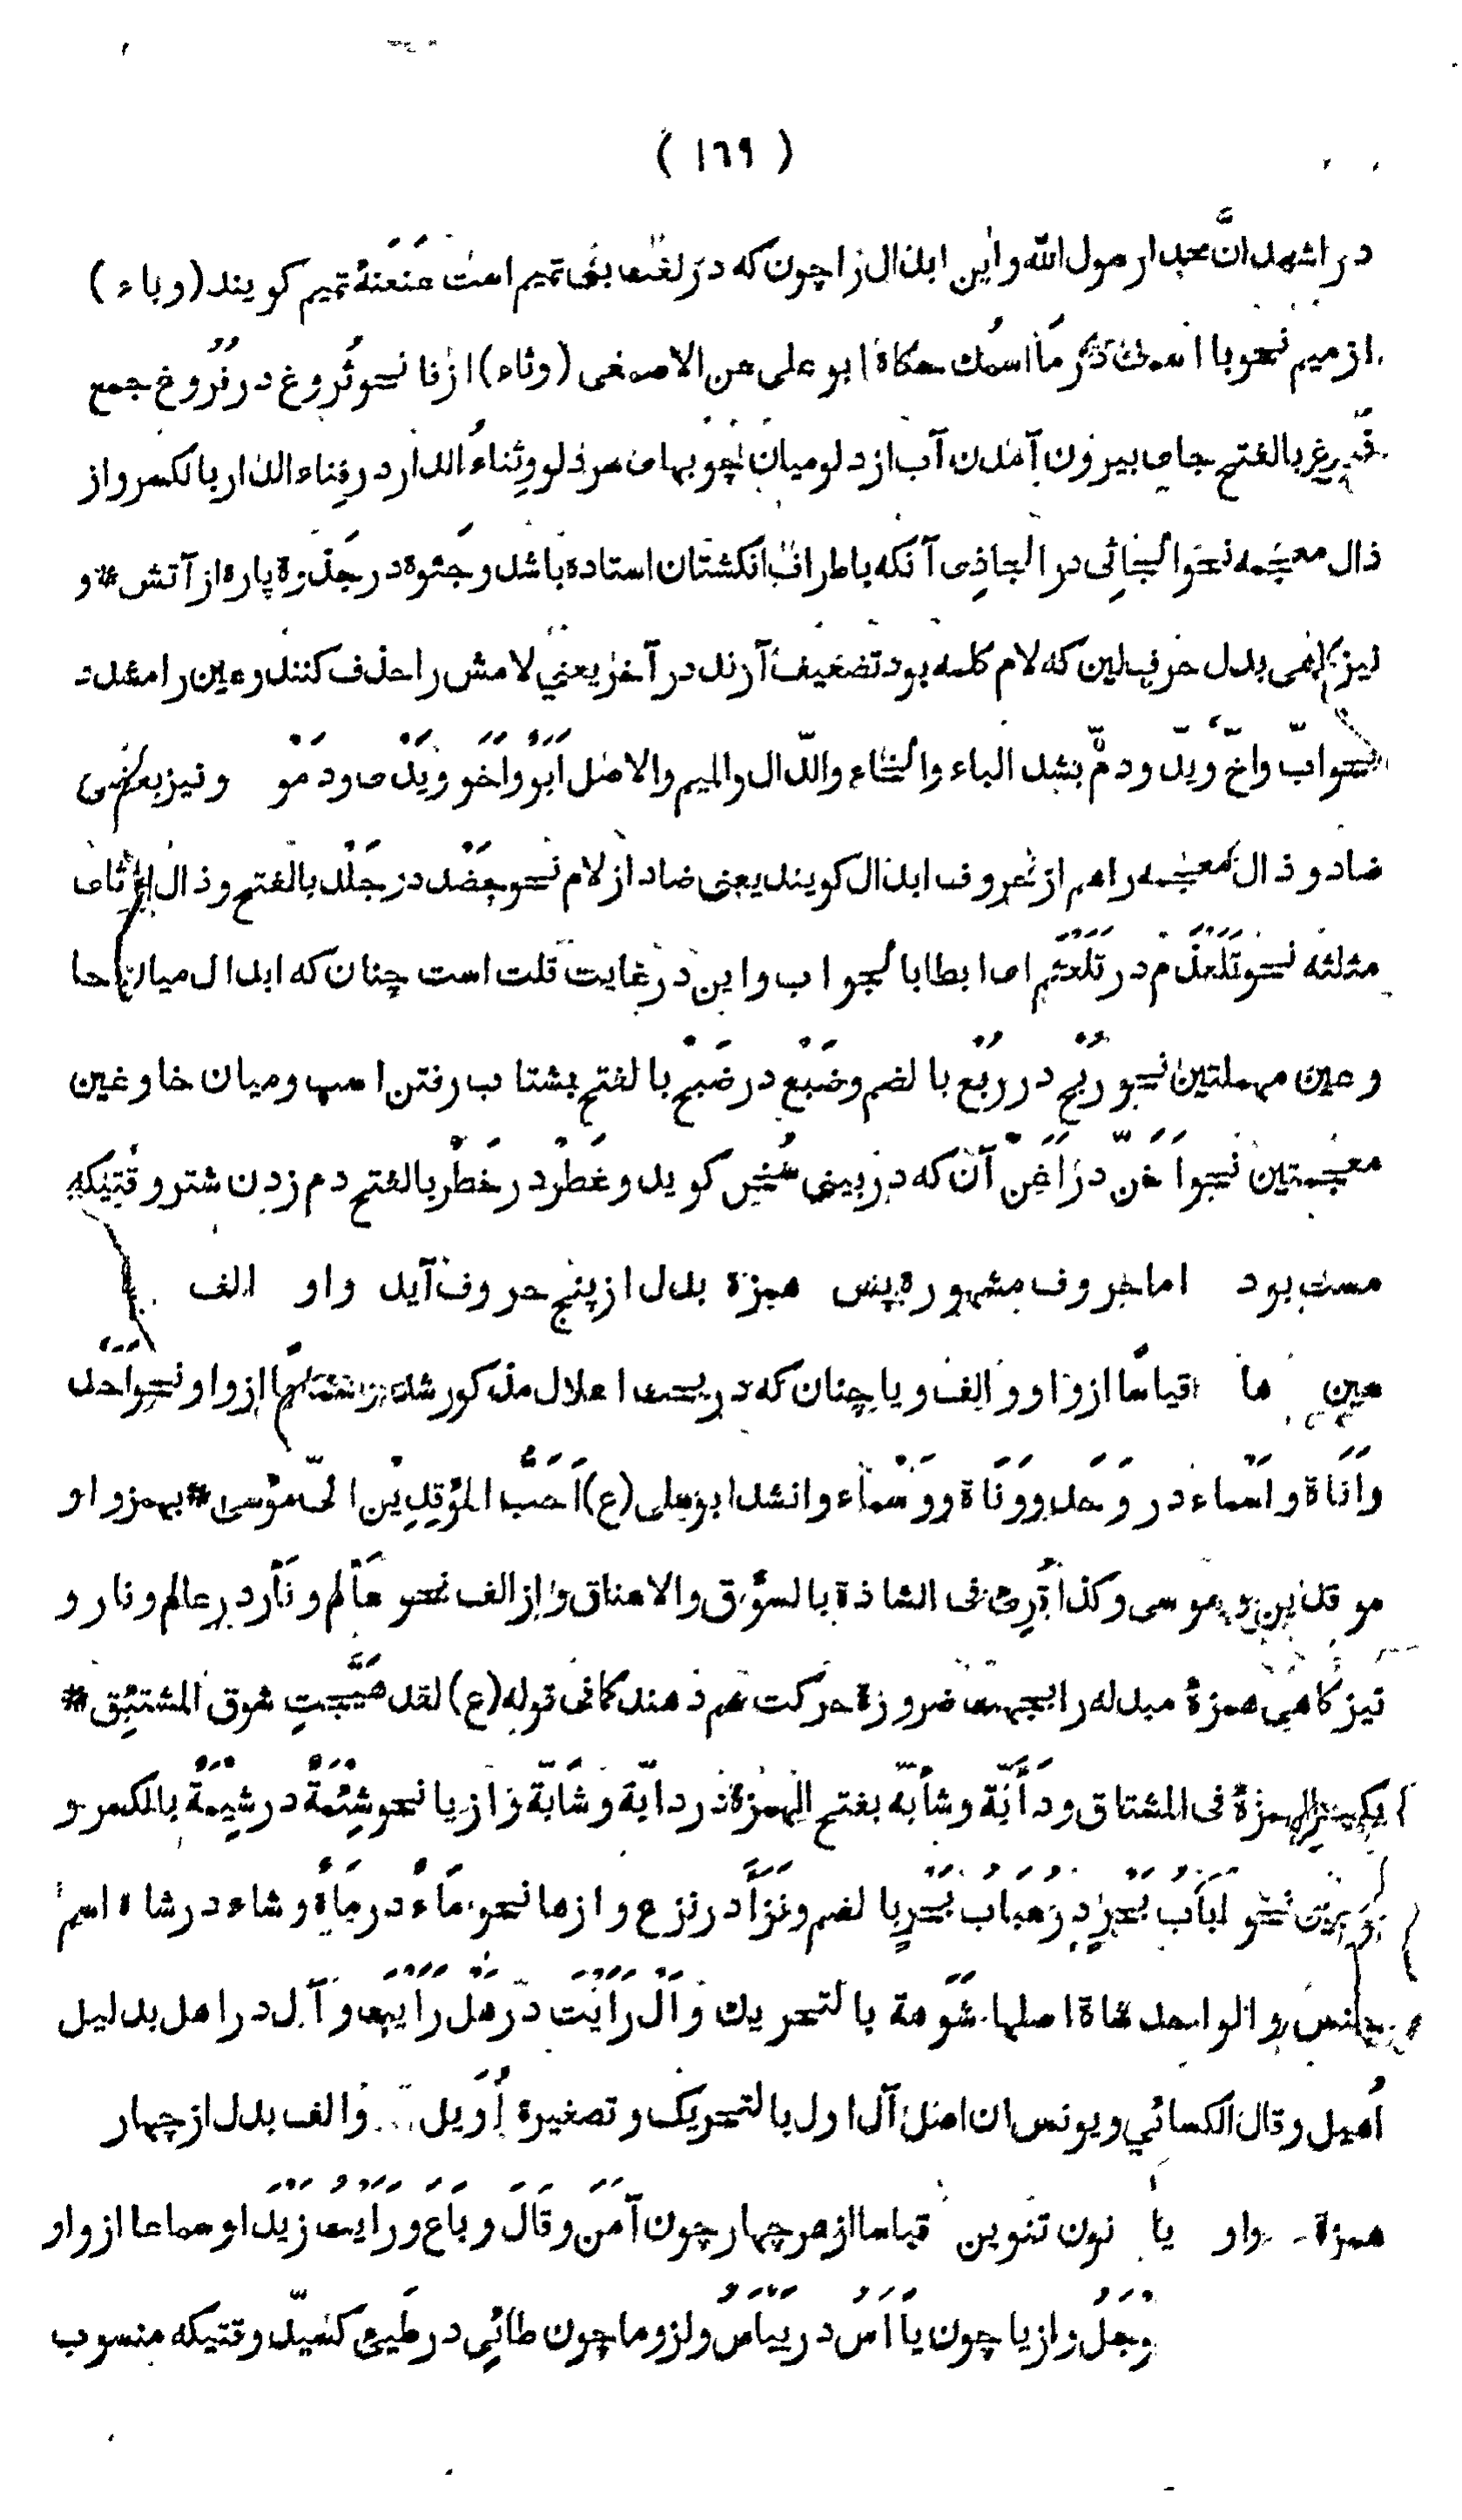 ( ١٦٩ )
در اشهد انَّ محمدا رسول الله و این ابدال را چون که در لغت بنی تمیم است عَنعَنهٔ تمیم کویند (و باء)
از میم نحو با اسمك در مَا اسمُك حکاه ابو علی عن الاصمعی (وثاء) از فا نحو ثُرُوغ در فُرُوغ جمع
فَرغ بالفتح جای بیرون آمدن آب از دلو میان چوبهای سر دلو و ثِناءُ الدار در فِناء الدار بالکسر و از
ذال معجمه نحو الجاثِی در الجاذِی آنکه باطراف انکشتان استاده باشد و جَثوة در جَذوة پاره از آتش * و
نیز کاهی بدل حرف لین که لام کلمه بود تضعیف آرند در آخر یعنی لامش را حذف کنند و عین را مشدد
نحو ابّ و اخّ و یدّ و دمّ بشد الباء والخاء والدال والمیم والاصل اَبَوٌ و اَخَوٌ و یَدْی و دَمْو و نیز بعضی
ضاد و ذال معجمه را هم از حروف ابدال کویند یعنی ضاد از لام نحو جَضْد در جَلْد بالفتح و ذال از ثای
مثلثه نحو تَلَعْذَمَ در تَلَعْثَمَ ای ابطا بالجواب و این در غایت قلت است چنان که ابدال میان حا
و عین مهملتین نحو رُبْح در رُبْع بالضم و ضَبْع در ضَبْح بالفتح بشتاب رفتن اسپ و میان خا و غین
معجمتین نحو اَخَنّ در اَغَنّ آن که در بینی سُخن کوید و غَطْر در خَطْر بالفتح دم زدن شتر وقتیکه
مست بود اما حروف مشهوره پس همزه بدل از پنج حروف آید واو الف
عین ها قیاسًا از واو و الف و یا چنان که در بحث اعلال مذکور شد و سماعًا از واو نحو اَحَد
و اَنَاة و اَسْماء در وَحَد و وَنَاة و وَسْماء و انشد ابو علی (ع) اَحَبُّ المُؤقِدِیْن الیّ مُؤسی * بهمز واو
موقدین و موسی و کذا قُرِئ فی الشاذة بالسؤق والاعناق و از الف نحو عَأْلم و نَأْر در عالم و نار و
نیز کاهی همزهٔ مبدله را بجهت ضرورة حرکت هم دهند کما فی قوله (ع) لقد هَیَّجتِ شوق المشتئِق *
بکسر الهمزةُ فی المشتاق و دَأَبَّة و شَأَبَّة بفتح الهمزة در دابّة و شَابّة و از یا نحو شِئْمَةٌ در شِیْمَةٌ بالکسر و
نحو اُبَابُ بَحْرٍ در عُبَابُ بَحْرٍ بالضم و نَزَأَ در نزع و از ها نحو مَاءٌ در مَاهٌ و شاء در شاه اسم
جنس و الواحد شاة اصلها شَوَهة بالتحریك و اَلْ رَأَیْتَ در هَلْ رَأَیْتَ و آل در اهل بدلیل
اُهیل و قال الکسائی و یونس ان اصل آل اول بالتحریک و تصغیره اُوَیل و الف بدل از چهار
همزة واو یا نون تنوین قیاسا از هر چهار چون آمَنَ و قَالَ و بَاعَ و رَأَیْتُ زَیْدَا و سماعا از واو
وَجَلُ و از یا چون یَاأَسُ در یَیْأَسُ و لزوما چون طائِی در طَیئ کسَیّد وقتیکه منسوب